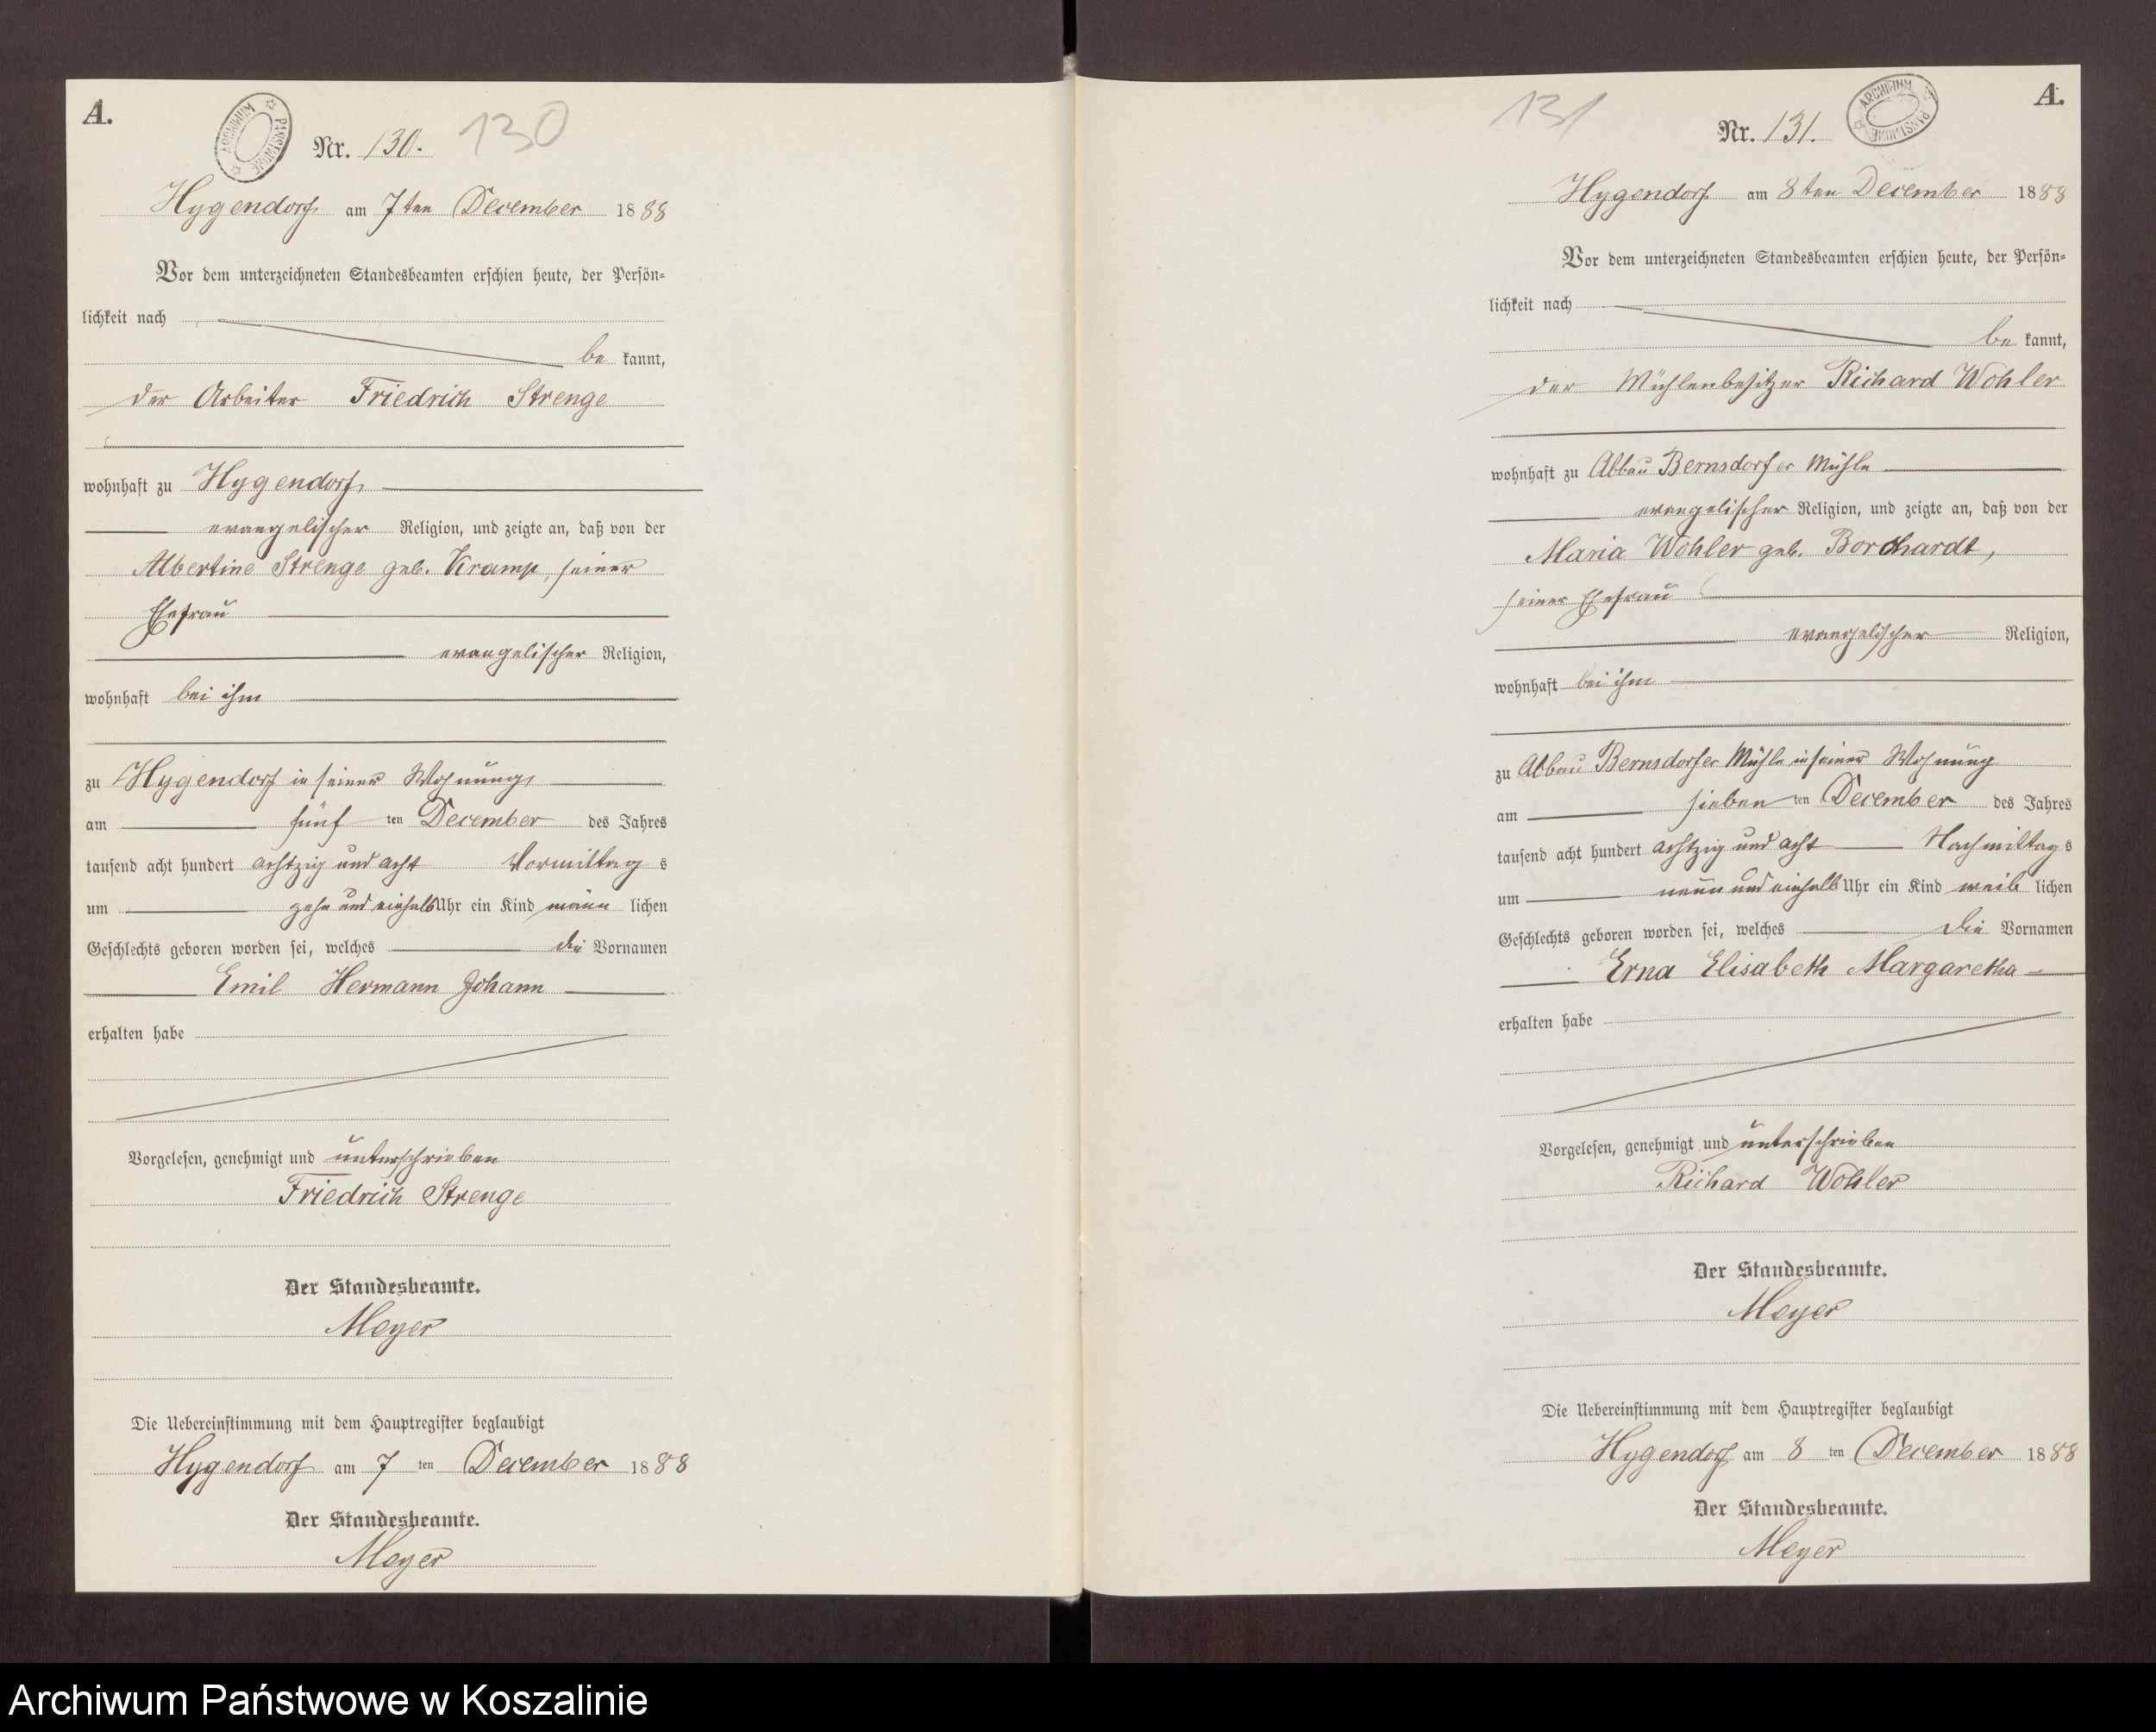 A.
ARCHIWUM PAŃSTWOWE
Nr. 130. 130
Hygendorf am 7ten December 1888
Vor dem unterzeichneten Standesbeamten erschien heute, der Persön-
lichkeit nach
be kannt,
der Arbeiter Friedrich Strenge
wohnhaft zu Hygendorf,
evangelischer Religion, und zeigte an, daß von der
Albertine Strenge geb. Kramp, seiner
Ehefrau
evangelischer Religion,
wohnhaft bei ihm
zu Hygendorf in seiner Wohnung,
am fünf ten December des Jahres
tausend acht hundert achtzig und acht Vormittag s
um zehn und einhalb Uhr ein Kind männ lichen
Geschlechts geboren worden sei, welches die Vornamen
Emil Hermann Johann
erhalten habe
Vorgelesen, genehmigt und unterschrieben
Friedrich Strenge
Der Standesbeamte.
Meyer
Die Uebereinstimmung mit dem Hauptregister beglaubigt
Hygendorf am 7 ten December 1888
Der Standesbeamte.
Meyer
A.
ARCHIWUM PAŃSTWOWE
131 Nr. 131.
Hygendorf am 8ten December 1888
Vor dem unterzeichneten Standesbeamten erschien heute, der Persön-
lichkeit nach
be kannt,
der Mühlenbesitzer Richard Wohler
wohnhaft zu Abbau Bernsdorfer Mühle
evangelischer Religion, und zeigte an, daß von der
Maria Wohler geb. Borchardt,
seiner Ehefrau
evangelischer Religion,
wohnhaft bei ihm
zu Abbau Bernsdorfer Mühle in seiner Wohnung
am sieben ten December des Jahres
tausend acht hundert achtzig und acht Nachmittag s
um neun und einhalb Uhr ein Kind weib lichen
Geschlechts geboren worden sei, welches die Vornamen
Erna Elisabeth Margaretha
erhalten habe
Vorgelesen, genehmigt und unterschrieben
Richard Wohler
Der Standesbeamte.
Meyer
Die Uebereinstimmung mit dem Hauptregister beglaubigt
Hygendorf am 8 ten December 1888
Der Standesbeamte.
Meyer
Archiwum Państwowe w Koszalinie